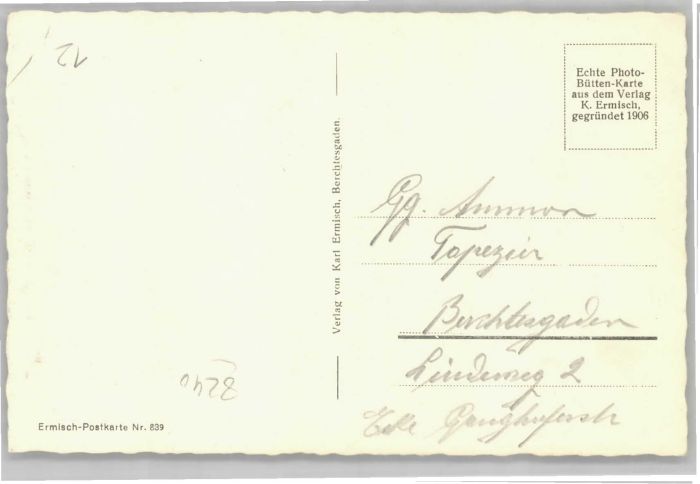 12
Echte Photo-
Bütten-Karte
aus dem Verlag
K. Ermisch,
gegründet 1906
Verlag von Karl Ermisch, Berchtesgaden.
Gg. Ammon
Tapezier
Berchtesgaden
Lindenweg 2
Ecke Ganghoferstr
8240
Ermisch-Postkarte Nr. 839